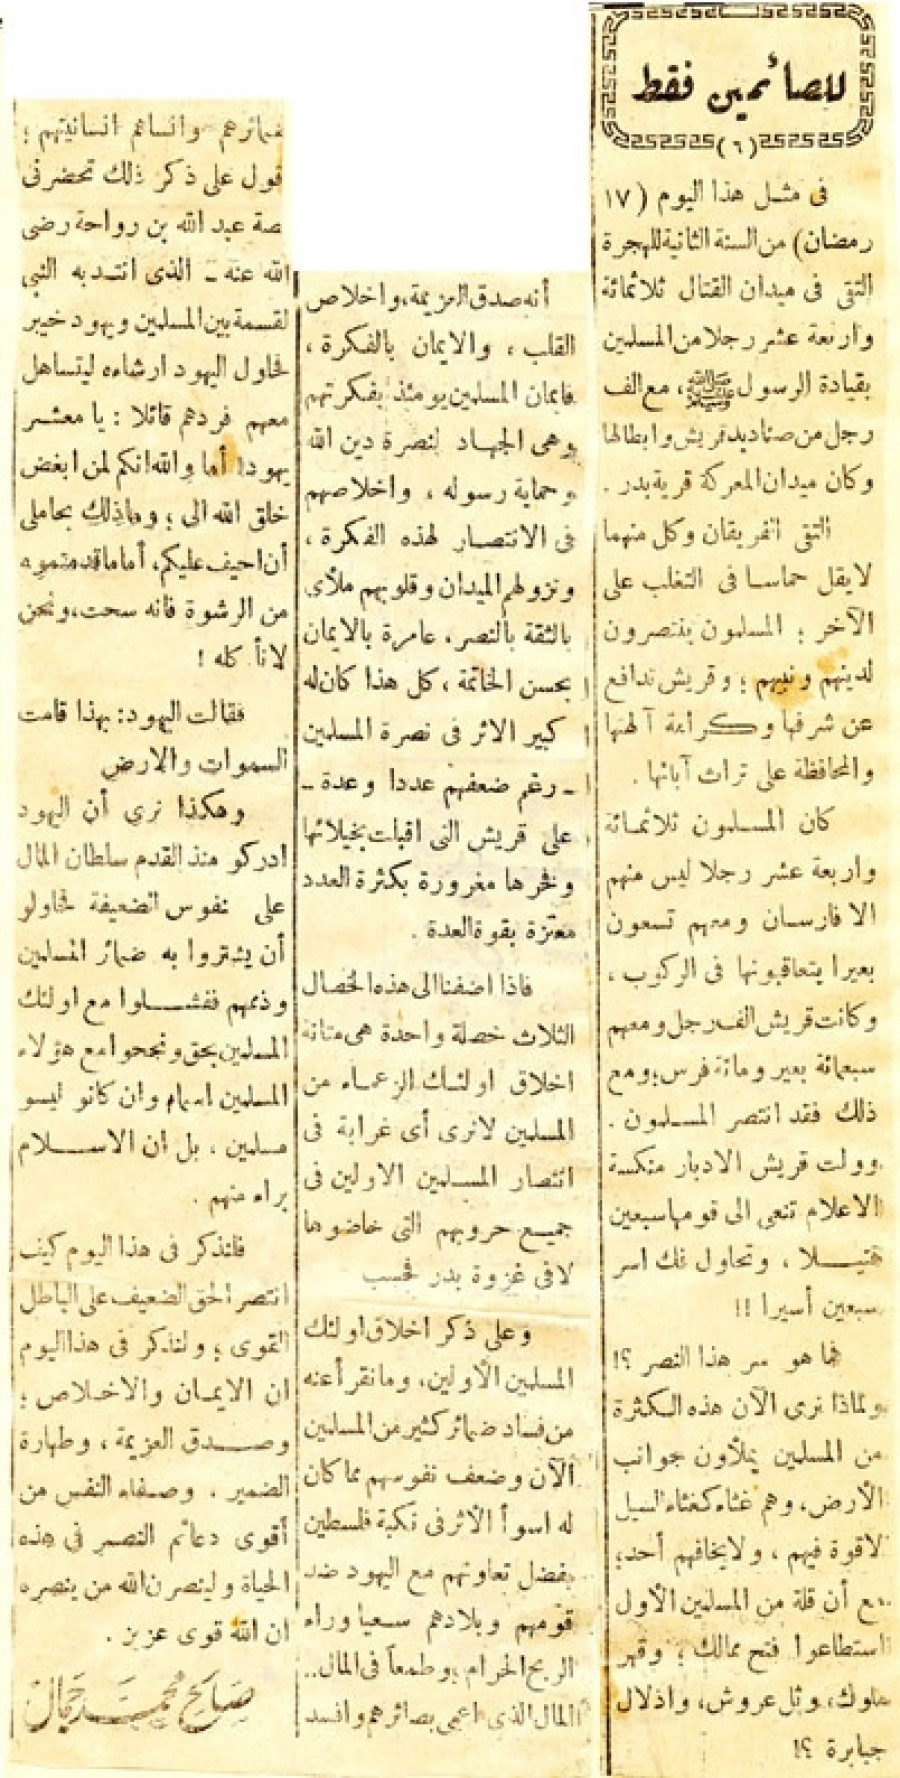 للصائمين فقط
(٦)
فى مثل هذا اليوم (١٧
رمضان) من السنة الثانية للهجرة
التقى فى ميدان القتال ثلاثمائة
واربعة عشر رجلا من المسلمين
بقيادة الرسول ﷺ، مع الف
رجل من صناديد قريش وابطالها
وكان ميدان المعركة قرية بدر.
التقى الفريقان وكل منهما
لا يقل حماسا فى التغلب على
الآخر؛ المسلمون ينتصرون
لدينهم ونبيهم؛ وقريش تدافع
عن شرفها وكرامة آلهتها
والمحافظة على تراث آبائها.
كان المسلمون ثلاثمائة
واربعة عشر رجلا ليس منهم
الا فارسان ومعهم تسعون
بعيرا يتعاقبونها فى الركوب،
وكانت قريش الف رجل ومعهم
سبعمائة بعير ومائة فرس؛ ومع
ذلك فقد انتصر المسلمون.
وولت قريش الادبار منكسة
الاعلام تنعى الى قومها سبعين
قتيلا، وتحاول فك اسر
سبعين أسيرا!!
فما هو سر هذا النصر؟!
ولماذا نرى الآن هذه الكثرة
من المسلمين يملأون جوانب
الأرض، وهم غثاء كغثاء السيل
لا قوة فيهم، ولا يخافهم أحد؛
مع أن قلة من المسلمين الأول
استطاعوا فتح ممالك؛ وقهر
ملوك، وثل عروش، واذلال
جبابرة؟!
أنه صدق العزيمة، واخلاص
القلب، والايمان بالفكرة،
فايمان المسلمين يومئذ بفكرتهم
وهى الجهاد لنصرة دين الله
وحماية رسوله، واخلاصهم
فى الانتصار لهذه الفكرة،
ونزولهم الميدان وقلوبهم ملأى
بالثقة بالنصر، عامرة بالايمان
بحسن الخاتمة، كل هذا كان له
كبير الاثر فى نصرة المسلمين
ـ رغم ضعفهم عددا وعدة ـ
على قريش التى اقبلت بخيلائها
وفخرها مغرورة بكثرة العدد
معتزة بقوة العدة.
فاذا اضفنا الى هذه الخصال
الثلاث خصلة واحدة هى متانة
اخلاق اولئك الزعماء من
المسلمين لا نرى أى غرابة فى
انتصار المسلمين الاولين فى
جميع حروبهم التى خاضوها
لا فى غزوة بدر فحسب
وعلى ذكر اخلاق اولئك
المسلمين الأولين، وما نقرأ عنه
من فساد ضمائر كثير من المسلمين
الآن وضعف نفوسهم مما كان
له اسوأ الأثر فى نكبة فلسطين
بفضل تعاونهم مع اليهود ضد
قومهم وبلادهم سعيا وراء
الربح الحرام؛ وطمعاً فى المال..
المال الذى اعمى بصائرهم وافسد
ضمائرهم وانساهم انسانيتهم؛
قول على ذكر ذلك تحضرنى
صة عبد الله بن رواحة رضى
الله عنه ـ الذى انتدبه النبى
لقسمة بين المسلمين ويهود خيبر
فحاول اليهود ارشاءه ليتساهل
معهم فردهم قائلا: يا معشر
يهود! أما والله انكم لمن ابغض
خلق الله الى؛ وما ذلك بحاملى
أن احيف عليكم، أما ما قدمتموه
من الرشوة فانه سحت، ونحن
لا نأكله!
فقالت اليهود: بهذا قامت
السموات والارض
وهكذا نرى أن اليهود
ادركو منذ القدم سلطان المال
على نفوس الضعيفة فحاولو
أن يشتروا به ضمائر المسلمين
وذممهم ففشلوا مع اولئك
المسلمين بحق ونجحوا مع هؤلاء
المسلمين اسما وان كانو ليسو
مسلمين، بل ان الاسلام
براء منهم.
فلنذكر فى هذا اليوم كيف
انتصر الحق الضعيف على الباطل
القوى؛ ولنذكر فى هذا اليوم
ان الايمان والاخلاص؛
وصدق العزيمة، وطهارة
الضمير. وصفاء النفس من
أقوى دعائم النصر فى هذه
الحياة ولينصرن الله من ينصره
ان الله قوى عزيز.
صالح محمد جمال